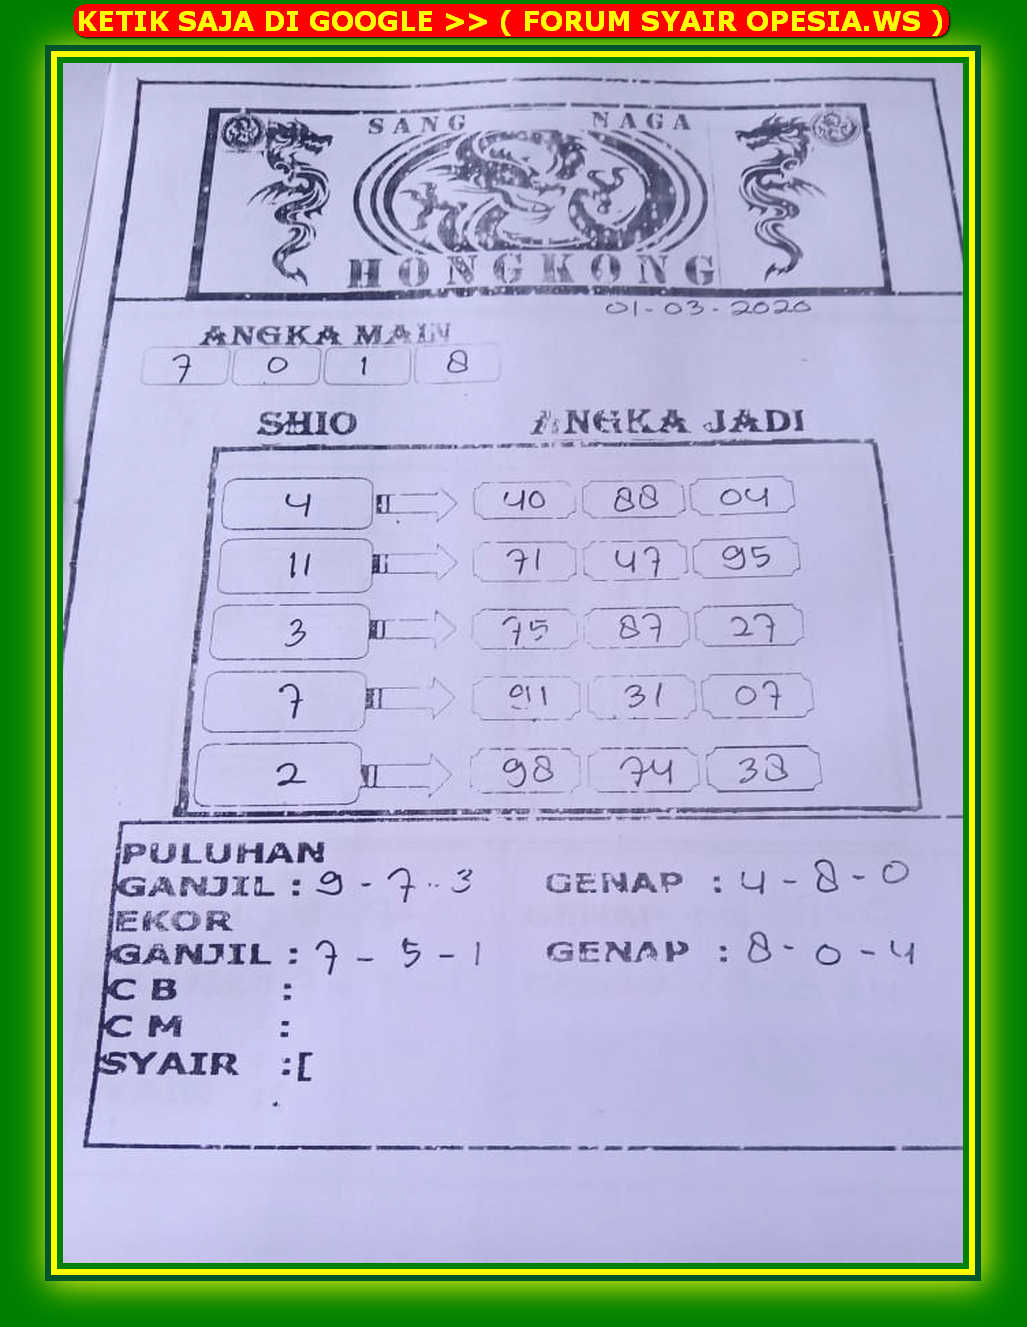 KETIK SAJA DI GOOGLE >> ( FORUM SYAIR OPESIA.WS )
SANG NAGA
HONGKONG
01-03-2020
ANGKA MAIN
7 0 1 8
SHIO ANGKA JADI
4 40 88 04
11 71 47 95
3 75 87 27
7 91 31 07
2 98 74 38
PULUHAN
GANJIL : 9 - 7 - 3 GENAP : 4 - 8 - 0
EKOR
GANJIL : 7 - 5 - 1 GENAP : 8 - 0 - 4
C B :
C M :
SYAIR :[